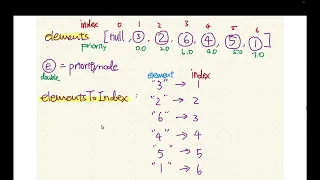 index 0 1 2 3 4 5 6
elements [null, 3, 2, 6, 4, 5, 1]
priority 0.0 2.0 6.0 4.0 5.0 7.0
E = prioritynode
double
element index
elementsToIndex :
"3" → 1
"2" → 2
"6" → 3
"4" → 4
"5" → 5
"1" → 6